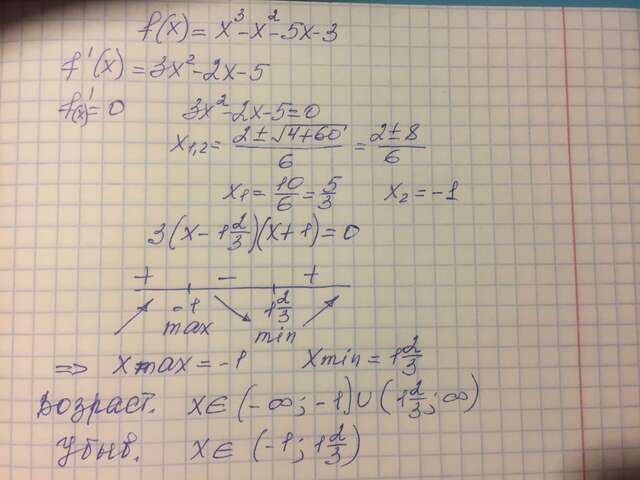 f(x) = x³-x²-5x-3
f'(x) = 3x²-2x-5
f'(x)=0 3x²-2x-5=0
x₁,₂= (2±√4+60)/6 = (2±8)/6
x₁= 10/6 = 5/3 x₂ = -1
3(x-1 2/3)(x+1)=0
+ - +
-1 1 2/3
max min
=> xmax = -1 xmin = 1 2/3
Возраст. x∈ (-∞; -1)∪(1 2/3; ∞)
Убыв. x∈ (-1; 1 2/3)